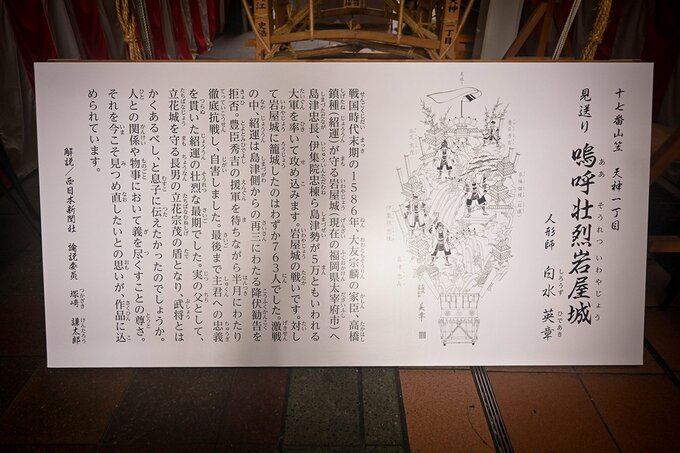 十七番山笠 天神一丁目
見送り 嗚呼壮烈岩屋城
ああ そうれつ いわやじょう
人形師 白水 英章
しろうず ひであき
戦国時代末期の1586年、大友宗麟の家臣、高橋
鎮種(紹運)が守る岩屋城(現在の福岡県太宰府市)へ
島津忠長、伊集院忠棟ら島津勢が5万ともいわれる
大軍を率いて攻め込みます。岩屋城の戦いです。対し
て岩屋城に籠城したのはわずか763人でした。激戦
の中、紹運は島津側からの再三にわたる降伏勧告を
拒否。豊臣秀吉の援軍を待ちながら半月にわたり
徹底抗戦し、自害しました。最後まで主君への忠義
を貫いた紹運の壮烈な最期でした。実の父として、
立花城を守る長男の立花宗茂の盾となり、武将とは
かくあるべし、と息子に伝えたかったのでしょうか。
人との関係や物事において義を尽くすことの尊さ。
それを今こそ見つめ直したいとの思いが、作品に込
められています。
解説/西日本新聞社 論説委員 塚崎 謙太郎
つかざき けんたろう